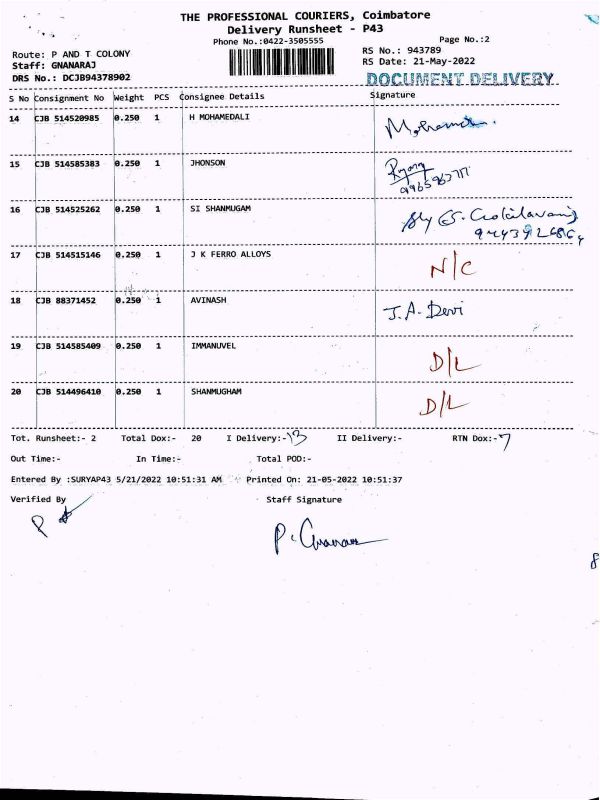 THE PROFESSIONAL COURIERS, Coimbatore
Delivery Runsheet - P43
Phone No.:0422-3505555
Page No.:2
Route: P AND T COLONY
RS No.: 943789
Staff: GNANARAJ
RS Date: 21-May-2022
DRS No.: DCJB94378902
DOCUMENT DELIVERY
S No Consignment No Weight PCS Consignee Details Signature
14 CJB 514520985 0.250 1 H MOHAMEDALI
15 CJB 514585383 0.250 1 JHONSON
16 CJB 514525262 0.250 1 SI SHANMUGAM
17 CJB 514515146 0.250 1 J K FERRO ALLOYS N/C
18 CJB 88371452 0.250 1 AVINASH J.A. Devi
19 CJB 514585409 0.250 1 IMMANUVEL D/L
20 CJB 514496410 0.250 1 SHANMUGHAM D/L
Tot. Runsheet:- 2 Total Dox:- 20 I Delivery:- 13 II Delivery:- RTN Dox:- 7
Out Time:- In Time:- Total POD:-
Entered By :SURYAP43 5/21/2022 10:51:31 AM Printed On: 21-05-2022 10:51:37
Verified By Staff Signature